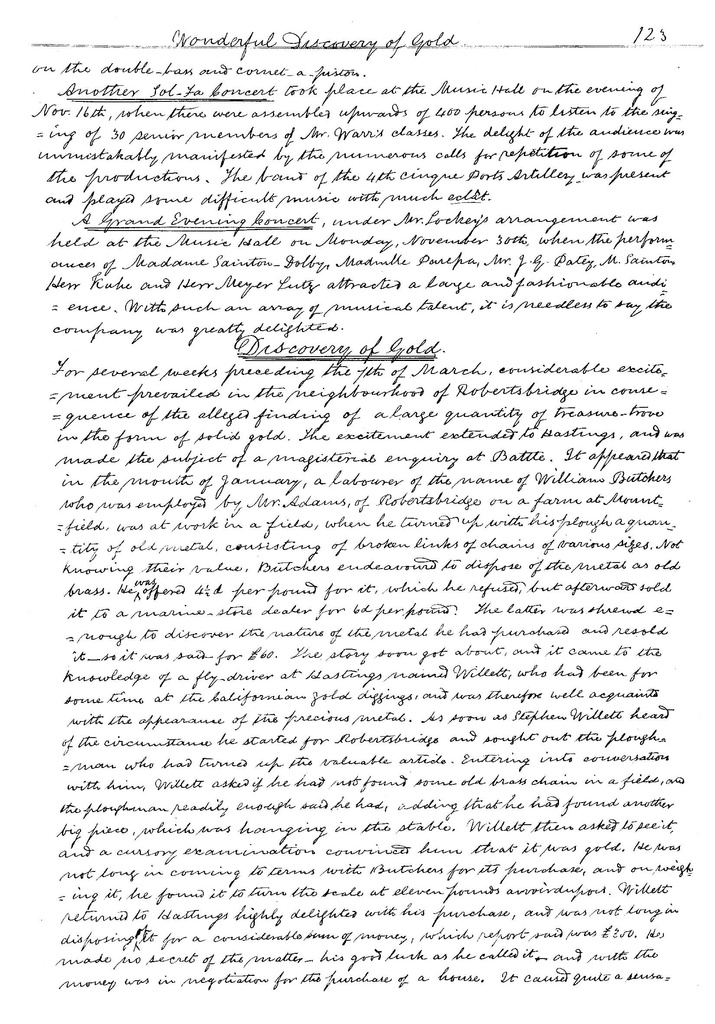 Wonderful Discovery of Gold 123
on the double-bass and cornet-a-piston.
Another Sol-Fa Concert took place at the Music Hall on the evening of
Nov. 16th, when there were assembled upwards of 400 persons to listen to the sing-
=ing of 30 senior members of Mr. Warr's classes. The delight of the audience was
unmistakably manifested by the numerous calls for repetition of some of
the productions. The band of the 4th Cinque Ports Artillery was present
and played some difficult music with much eclât.
A Grand Evening Concert, under Mr. Lockey's arrangement was
held at the Music Hall on Monday, November 30th, when the perform
ances of Madame Sainton-Dolby, Madmlle Parepa, Mr. J. G. Patey, M. Sainton,
Herr Kuhe and Herr Meyer Lutz attracted a large and fashionable audi
=ence. With such an array of musical talent, it is needless to say the
company was greatly delighted.
Discovery of Gold.
For several weeks preceding the 7th of March, considerable excite=
=ment prevailed in the neighbourhood of Robertsbridge in conse=
=quence of the alleged finding of a large quantity of treasure-trove
in the form of solid gold. The excitement extended to Hastings, and was
made the subject of a magisterial enquiry at Battle. It appeared that
in the month of January, a labourer of the name of William Butchers
who was employed by Mr. Adams, of Robertsbridge on a farm at Mount-
=field, was at work in a field, when he turned up with his plough a quan-
=tity of old metal, consisting of broken links of chains of various sizes. Not
knowing their value, Butchers endeavoured to dispose of the metal as old
brass. He was offered 4½d per pound for it, which he refused, but afterward sold
it to a marine-store dealer for 6d per pound. The latter was shrewd e=
=nough to discover the nature of the metal he had purchasd and resold
it—so it was said—for £60. The story soon got about, and it came to the
knowledge of a fly-driver at Hastings named Willett, who had been for
some time at the Californian gold diggings, and was therefore well acquainted
with the appearance of the precious metal. As soon as Stephen Willett heard
of the circumstance he started for Robertsbridge and sought out the plough-
=man who had turned up the valuable article. Entering into conversation
with him, Willett asked if he had not found some old brass chain in a field, and
the ploughman readily enough said he had, adding that he had found another
big piece, which was hanging in the stable. Willett then asked to see it,
and a cursory examination convinced him that it was gold. He was
not long in coming to terms with Butchers for its purchase, and on weigh-
=ing it, he found it to turn the scale at eleven pounds avoirdupois. Willett
returned to Hastings highly delighted with his purchase, and was not long in
disposing of it for a considerable sum of money, which report said was £300. He
made no secret of the matter—his good luck as he called it—and with the
money was in negotiation for the purchase of a house. It caused quite a sensa=